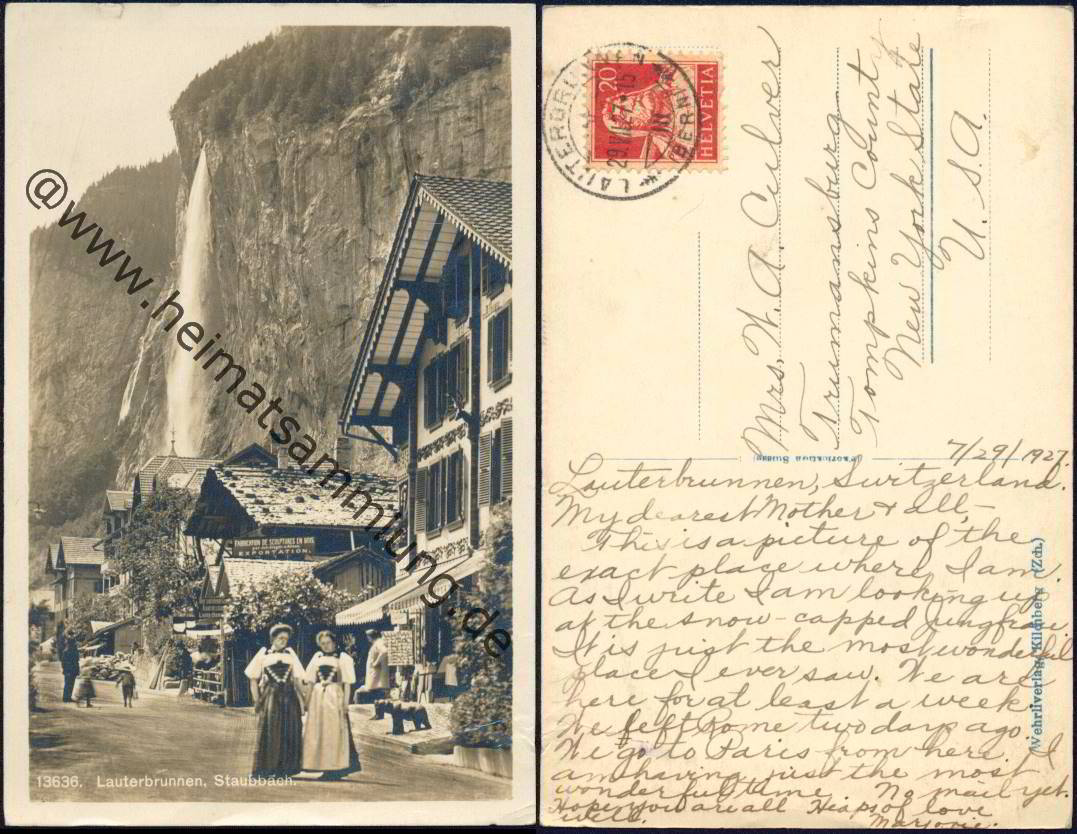 @www.heimatsammlung.de
FABRICATION DE SCULPTURES EN BOIS
EXPORTATION.
13636. Lauterbrunnen, Staubbach.
LAUTERBRUNNEN
(BERN)
29.VII.27
20
HELVETIA
Mrs. W. A. Culver
Trumansburg
Tompkins County
New York State
U.S.A.
7/29/1927.
Lauterbrunnen, Switzerland.
My dearest Mother & all,-
This is a picture of the
exact place where I am.
As I write I am looking up
at the snow-capped Jungfrau.
It is just the most wonderful
place I ever saw. We are
here for at least a week
We left Rome two days ago.
We go to Paris from here. I
am having just the most
wonderful time. No mail yet.
Hope you are all Heaps of love
well. Marjorie.
Wehrliverlag, Kilchberg (Zch.)